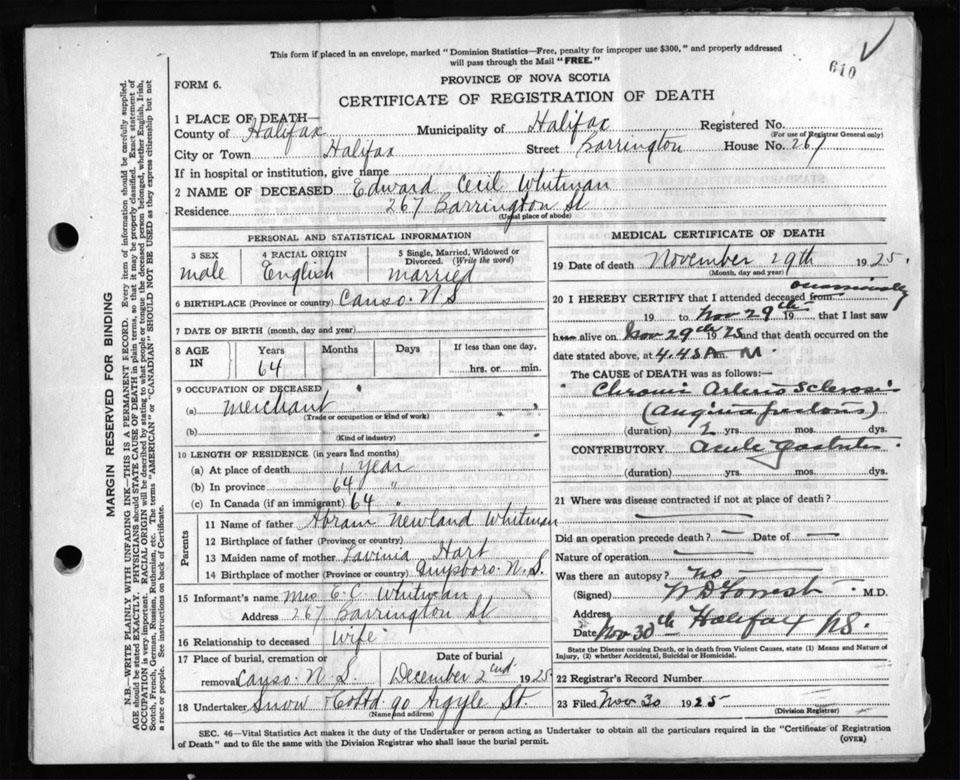 This form if placed in an envelope, marked "Dominion Statistics—Free, penalty for improper use $300," and properly addressed
will pass through the Mail "FREE."
610
FORM 6.
PROVINCE OF NOVA SCOTIA
CERTIFICATE OF REGISTRATION OF DEATH
1 PLACE OF DEATH—
County of Halifax Municipality of Halifax Registered No.
(For use of Registrar General only)
City or Town Halifax Street Barrington House No. 267
If in hospital or institution, give name
2 NAME OF DECEASED Edward Cecil Whitman
Residence 267 Barrington St
(Usual place of abode)
PERSONAL AND STATISTICAL INFORMATION
3 SEX 4 RACIAL ORIGIN 5 Single, Married, Widowed or
Divorced. (Write the word)
male English married
6 BIRTHPLACE (Province or country) Canso. N S
7 DATE OF BIRTH (month, day and year)
8 AGE IN Years Months Days If less than one day,
64 hrs. or min.
9 OCCUPATION OF DECEASED
(a) merchant
(Trade or occupation or kind of work)
(b)
(Kind of industry)
10 LENGTH OF RESIDENCE (in years and months)
(a) At place of death 1 year
(b) In province 64 "
(c) In Canada (if an immigrant) 64 "
Parents
11 Name of father Abram Newland Whitman
12 Birthplace of father (Province or country)
13 Maiden name of mother Lavinia Hart
14 Birthplace of mother (Province or country) Guysboro. N. S.
15 Informant's name Mrs E. C Whitman
Address 267 Barrington St
16 Relationship to deceased Wife
17 Place of burial, cremation or Date of burial
removal Canso. N. S. December 2nd 1925
18 Undertaker Snow & Co Ltd. 90 Argyle St.
(Name and address)
MEDICAL CERTIFICATE OF DEATH
19 Date of death November 29th 1925.
(Month, day and year)
20 I HEREBY CERTIFY that I attended deceased from
19 to Nov 29th 19 , that I last saw
him alive on Nov 29th 1925 and that death occurred on
date stated above, at 4.45 A m. M
The CAUSE of DEATH was as follows:—
Chronic Arterio Sclerosis
(Angina Pectoris)
(duration) 2 yrs. mos. dys.
CONTRIBUTORY acute Gastritis
(duration) yrs. mos. dys.
21 Where was disease contracted if not at place of death?
Did an operation precede death? — Date of —
Nature of operation —
Was there an autopsy? no
(Signed) W D Forrest M.D.
Address
Date Nov 30th Halifax NS.
State the Disease causing Death, or in death from Violent Causes, state (1) Means and Nature of
Injury, (2) whether Accidental, Suicidal or Homicidal.
22 Registrar's Record Number
23 Filed Nov 30 1925
(Division Registrar)
SEC. 46—Vital Statistics Act makes it the duty of the Undertaker or person acting as Undertaker to obtain all the particulars required in the "Certificate of Registration
of Death" and to file the same with the Division Registrar who shall issue the burial permit. (OVER)
MARGIN RESERVED FOR BINDING
N.B.—WRITE PLAINLY WITH UNFADING INK—THIS IS A PERMANENT RECORD. Every item of information should be carefully supplied.
AGE should be stated EXACTLY. PHYSICIANS should STATE CAUSE OF DEATH in plain terms, so that it may be properly classified. Exact statement of
OCCUPATION is very important. RACIAL ORIGIN will be described by stating to what people or tongue the deceased person belonged, whether English, Irish,
Scotch, French, German, Russian, Ruthenian, etc. The terms "AMERICAN" or "CANADIAN" SHOULD NOT BE USED as they express citizenship but not
a race or people. See instructions on back of Certificate.